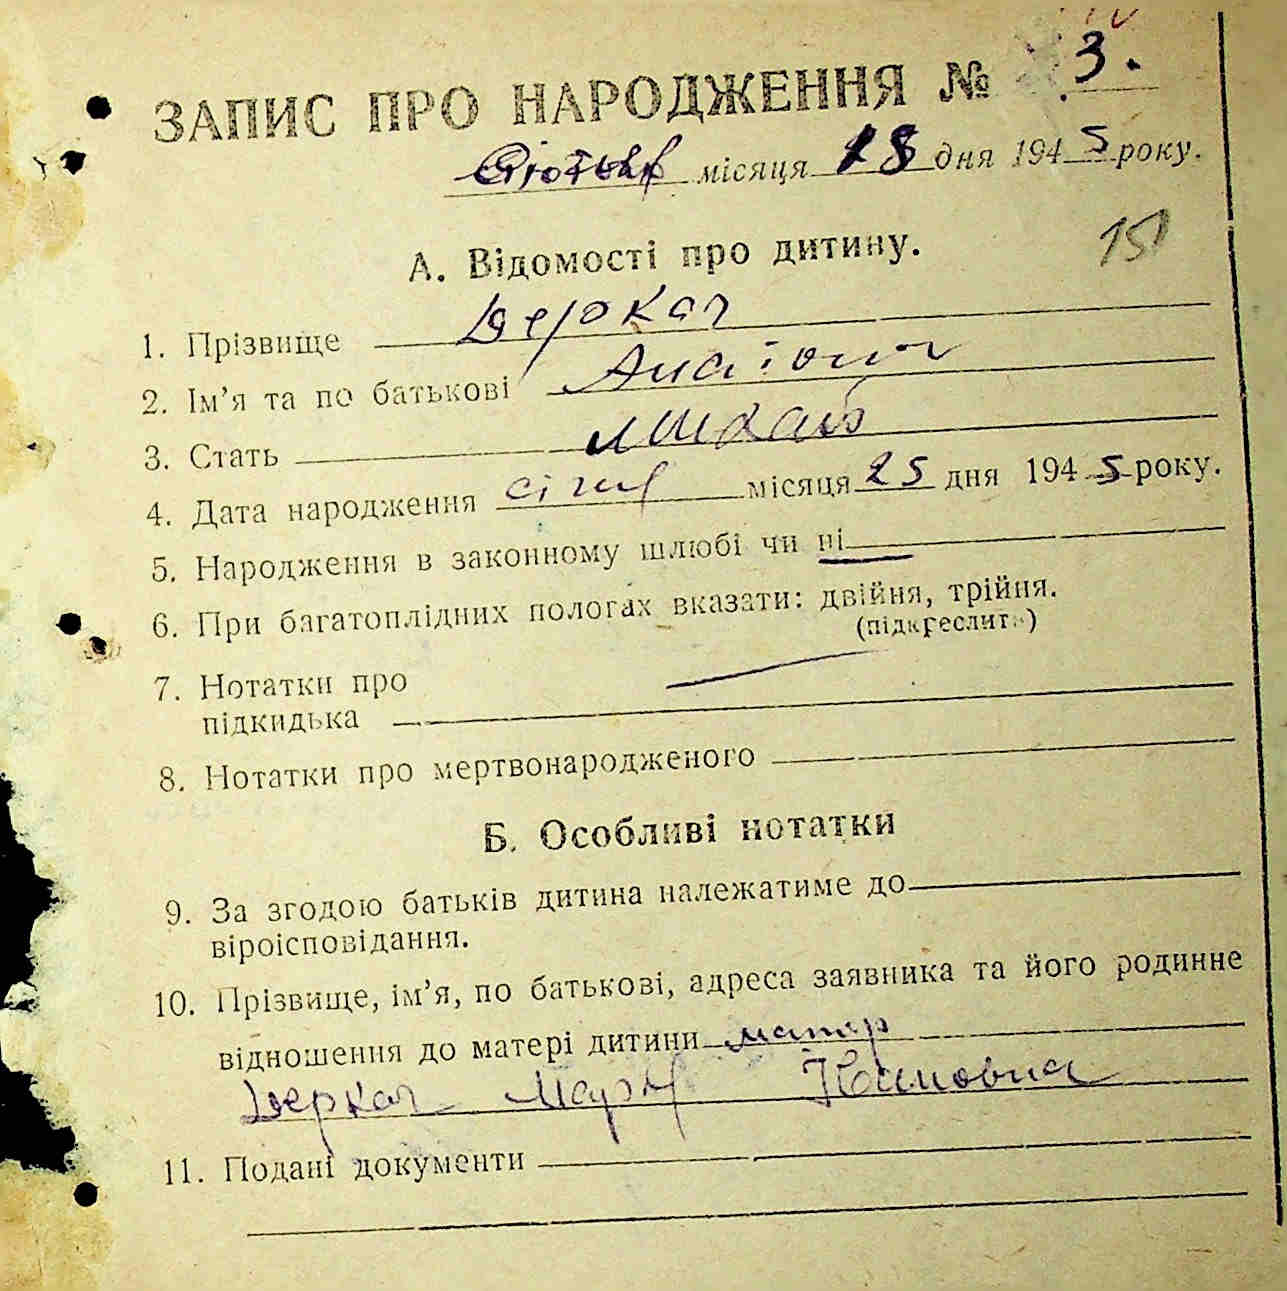 ЗАПИС ПРО НАРОДЖЕННЯ № 3.
місяця 18 дня 1945 року.
151
А. Відомості про дитину.
1. Прізвище Деркач
2. Ім’я та по батькові Анатолій
3. Стать
4. Дата народження січня місяця 25 дня 1945 року.
5. Народження в законному шлюбі чи ні
6. При багатоплідних пологах вказати: двійня, трійня.
(підкреслить)
7. Нотатки про
підкидька
8. Нотатки про мертвонародженого
Б. Особливі нотатки
9. За згодою батьків дитина належатиме до
віроісповідання.
10. Прізвище, ім’я, по батькові, адреса заявника та його родинне
відношення до матері дитини матір
Деркач Марія
11. Подані документи